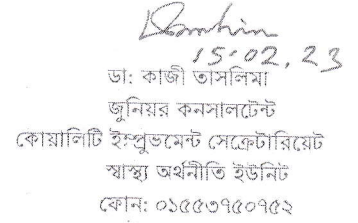 15.02.23
ডা: কাজী তাসলিমা
জুনিয়র কনসালটেন্ট
কোয়ালিটি ইম্প্রুভমেন্ট সেক্রেটারিয়েট
স্বাস্থ্য অর্থনীতি ইউনিট
ফোন: ০১৫৫৩৭৫০৭৫২